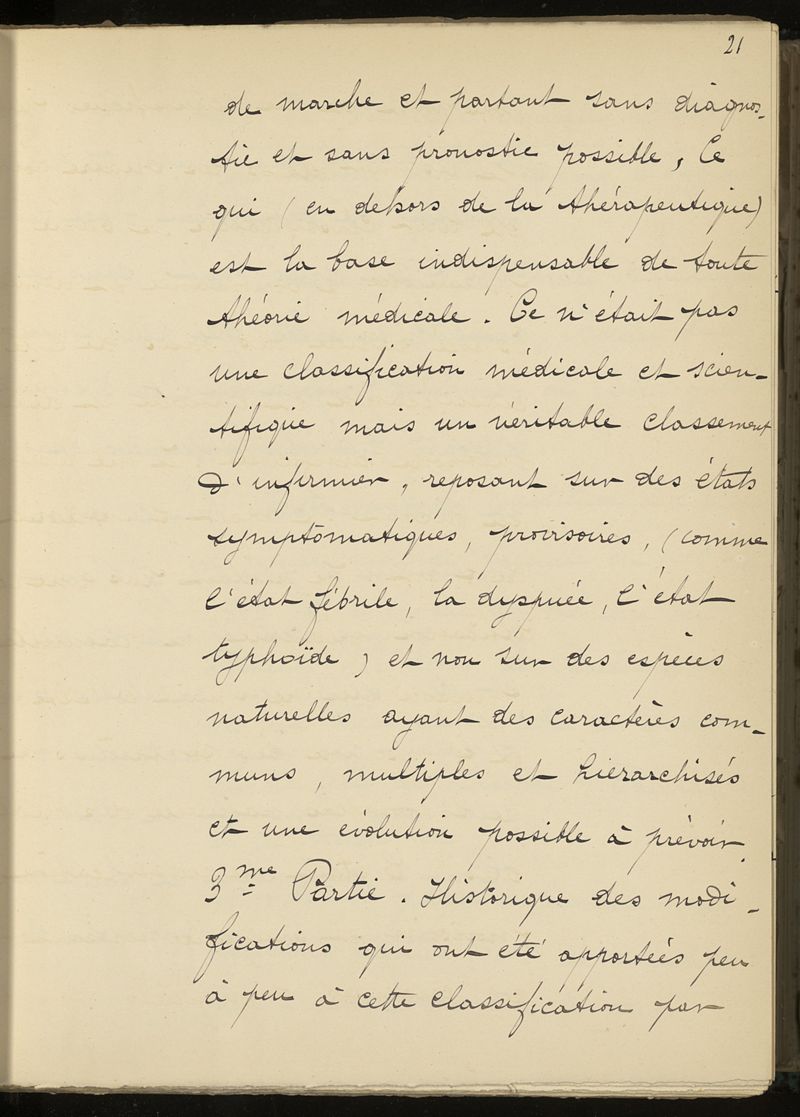 21
de marche et partant sans diagnos-
tic et sans pronostic possible, Ce
qui (en dehors de la thérapeutique)
est la base indispensable de toute
théorie médicale. Ce n'était pas
une classification médicale et scien-
tifique mais un véritable classement
d'infirmier, reposant sur des états
symptômatiques, provisoires, (comme
l'état fébrile, la dyspnée, l'état
typhoïde) et non sur des espèces
naturelles ayant des caractères com-
muns, multiples et hiérarchisés
et une évolution possible à prévoir.
3me Partie. Historique des modi-
fications qui ont été apportées peu
à peu à cette classification par